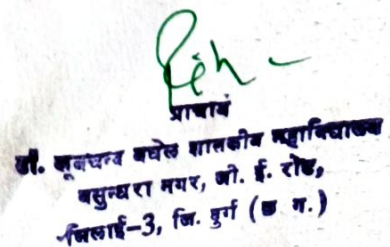 प्राचार्य
डॉ. खूबचन्द बघेल शासकीय महाविद्यालय
वसुन्धरा नगर, जी. ई. रोड,
भिलाई-3, जि. दुर्ग (छ ग.)